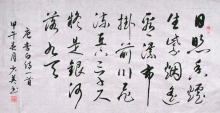 日照香爐
生紫煙遙
看瀑布
掛前川飛
流直下三千尺
疑是銀河
落九天
唐李白詩一首
甲午春月